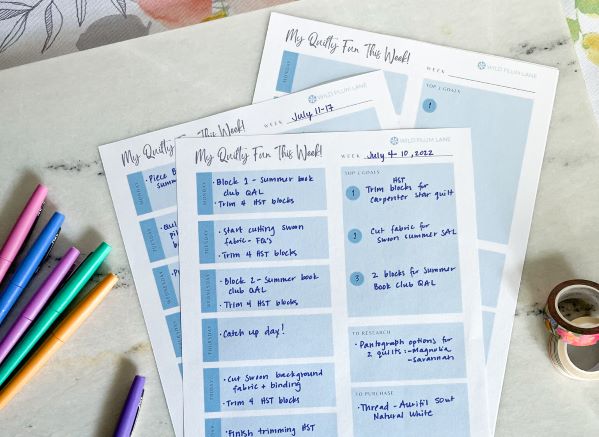 My Quilty Fun This Week!
WILD PLUM LANE
WEEK
MONDAY
TOP 3 GOALS
1
My Quilty Fun This Week!
WILD PLUM LANE
WEEK July 11-17
My Quilty Fun This Week!
WILD PLUM LANE
WEEK July 4-10, 2022
MONDAY
• Block 1 - Summer book
club QAL
• Trim 4 HST blocks
TUESDAY
• Start cutting swoon
fabric - FQ's
• Trim 4 HST blocks
WEDNESDAY
• Block 2 - Summer book
club QAL
• Trim 4 HST blocks
THURSDAY
• Catch up day!
• Cut Swoon background
fabric + binding
• Trim 4 HST blocks
• Finish trimming HST
TOP 3 GOALS
1
HST
Trim blocks for
carpenter star quilt
2
Cut fabric for
swoon summer SAL
3
2 blocks for Summer
Book Club QAL
TO RESEARCH
• Pantograph options for
2 quilts: - Magnolia
- Savannah
TO PURCHASE
• Thread - Aurifil 50wt
Natural White